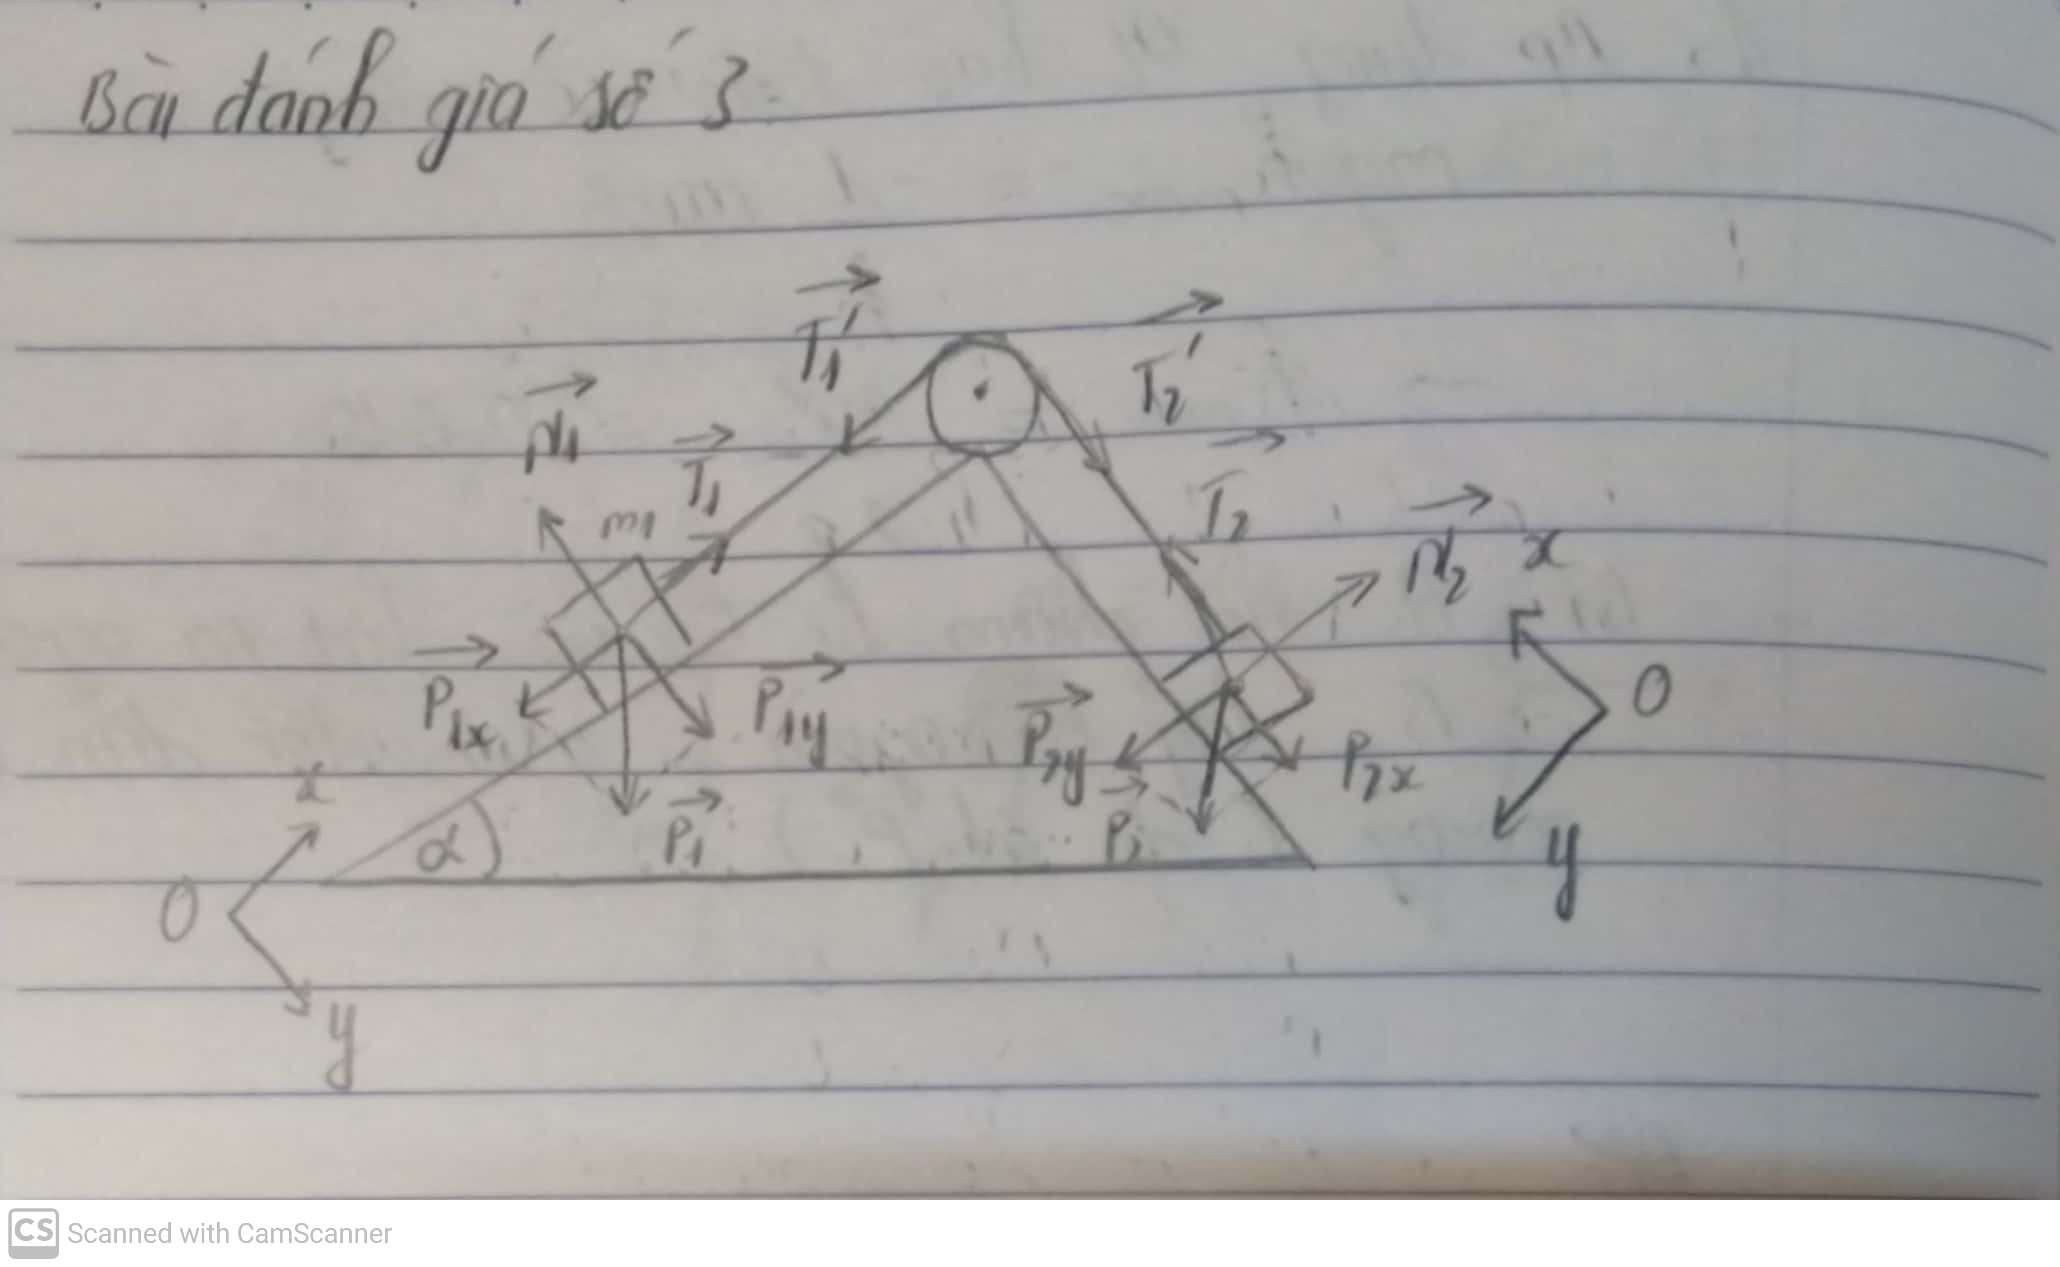 Bài đánh giá số 3
T₁'
T₂'
N₁
T₁
m₁
T₂
N₂
x
O
P₁ₓ
P₁y
P₂y
P₂ₓ
x
α
P₁
P₂
y
O
y
CS Scanned with CamScanner